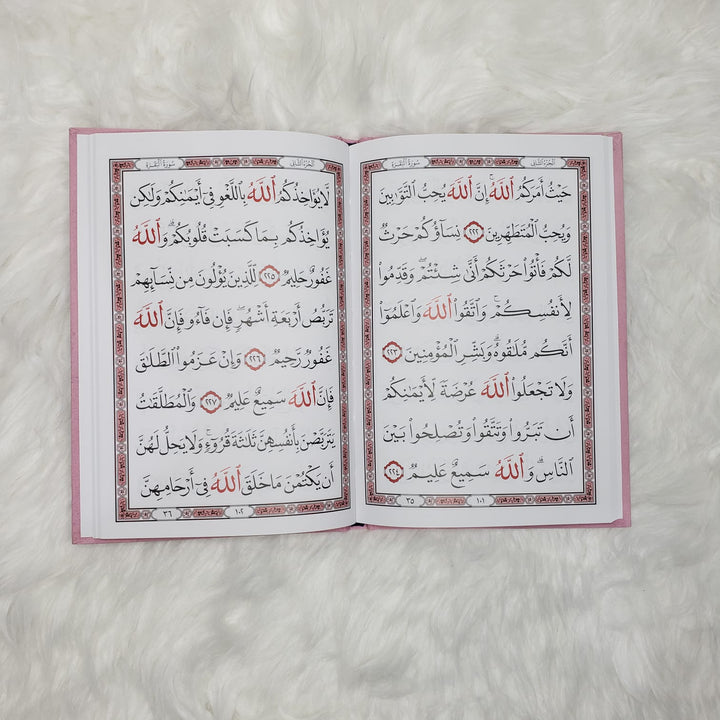 سُورَةُ الْبَقَرَةِ
الْجُزْءُ الثَّانِي
حَيْثُ أَمَرَكُمُ ٱللَّهُ ۚ إِنَّ ٱللَّهَ يُحِبُّ ٱلتَّوَّٰبِينَ
وَيُحِبُّ ٱلْمُتَطَهِّرِينَ ٢٢٢ نِسَآؤُكُمْ حَرْثٌ
لَّكُمْ فَأْتُوا۟ حَرْثَكُمْ أَنَّىٰ شِئْتُمْ ۖ وَقَدِّمُوا۟
لِأَنفُسِكُمْ ۚ وَٱتَّقُوا۟ ٱللَّهَ وَٱعْلَمُوٓا۟
أَنَّكُم مُّلَٰقُوهُ ۗ وَبَشِّرِ ٱلْمُؤْمِنِينَ ٢٢٣
وَلَا تَجْعَلُوا۟ ٱللَّهَ عُرْضَةً لِّأَيْمَٰنِكُمْ
أَن تَبَرُّوا۟ وَتَتَّقُوا۟ وَتُصْلِحُوا۟ بَيْنَ
ٱلنَّاسِ ۗ وَٱللَّهُ سَمِيعٌ عَلِيمٌ ٢٢٤
١٠١
٣٥
سُورَةُ الْبَقَرَةِ
الْجُزْءُ الثَّانِي
لَّا يُؤَاخِذُكُمُ ٱللَّهُ بِٱللَّغْوِ فِىٓ أَيْمَٰنِكُمْ وَلَٰكِن
يُؤَاخِذُكُم بِمَا كَسَبَتْ قُلُوبُكُمْ ۗ وَٱللَّهُ
غَفُورٌ حَلِيمٌ ٢٢٥ لِّلَّذِينَ يُؤْلُونَ مِن نِّسَآئِهِمْ
تَرَبُّصُ أَرْبَعَةِ أَشْهُرٍ ۖ فَإِن فَآءُو فَإِنَّ ٱللَّهَ
غَفُورٌ رَّحِيمٌ ٢٢٦ وَإِنْ عَزَمُوا۟ ٱلطَّلَٰقَ
فَإِنَّ ٱللَّهَ سَمِيعٌ عَلِيمٌ ٢٢٧ وَٱلْمُطَلَّقَٰتُ
يَتَرَبَّصْنَ بِأَنفُسِهِنَّ ثَلَٰثَةَ قُرُوٓءٍ ۚ وَلَا يَحِلُّ لَهُنَّ
أَن يَكْتُمْنَ مَا خَلَقَ ٱللَّهُ فِىٓ أَرْحَامِهِنَّ
١٠٢
٣٦